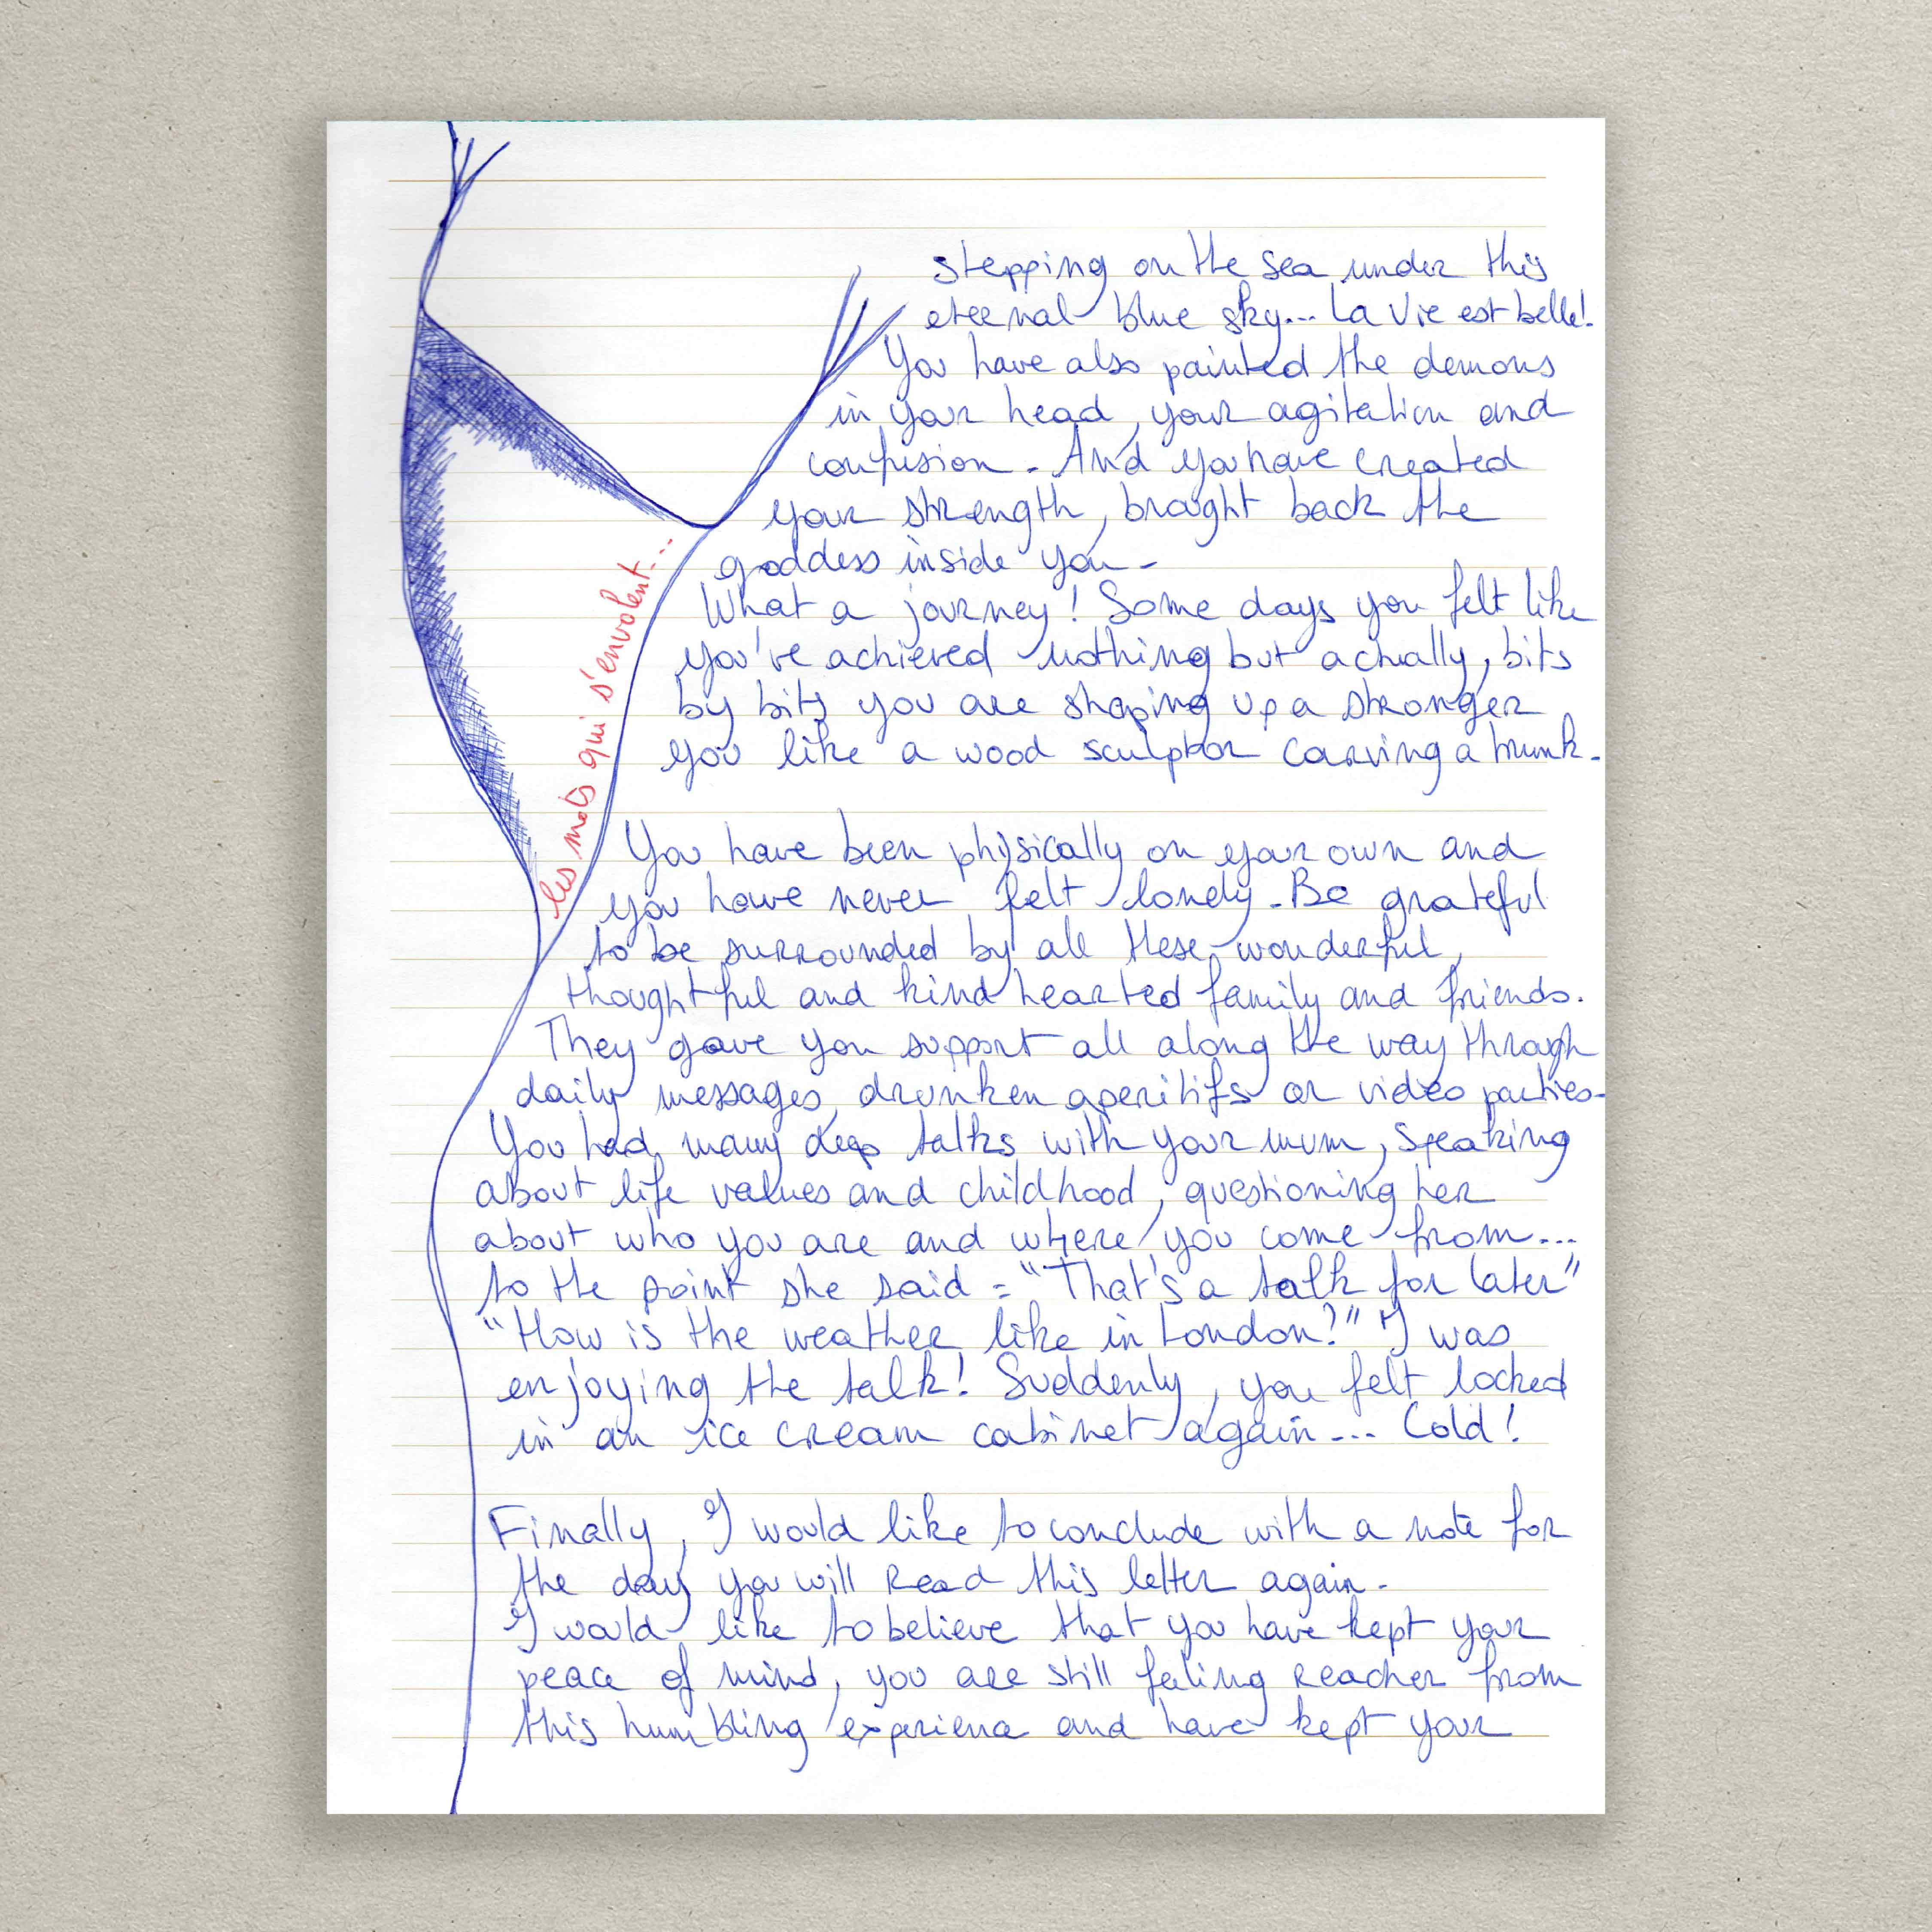 stepping on the sea under this
eternal blue sky... La Vie est belle!
You have also painted the demons
in your head, your agitation and
confusion. And you have created
your strength, brought back the
goddess inside you -
What a journey! Some days you felt like
you've achieved nothing but actually, bits
by bits you are shaping up a stronger
you like a wood sculptor carving a trunk.
les mots qui s'envolent...
You have been physically on your own and
you have never felt lonely. Be grateful
to be surrounded by all these wonderful,
thoughtful and kind hearted family and friends.
They gave you support all along the way through
daily messages, drunken aperitifs or video parties-
You had many deep talks with your mum, speaking
about life values and childhood, questioning her
about who you are and where you come from...
to the point she said = "That's a talk for later"
"How is the weather like in London?" I was
enjoying the talk! Suddenly, you felt locked
in an ice cream cabinet again... Cold!
Finally, I would like to conclude with a note for
the day you will read this letter again.
I would like to believe that you have kept your
peace of mind, you are still feeling reacher from
this humbling experience and have kept your